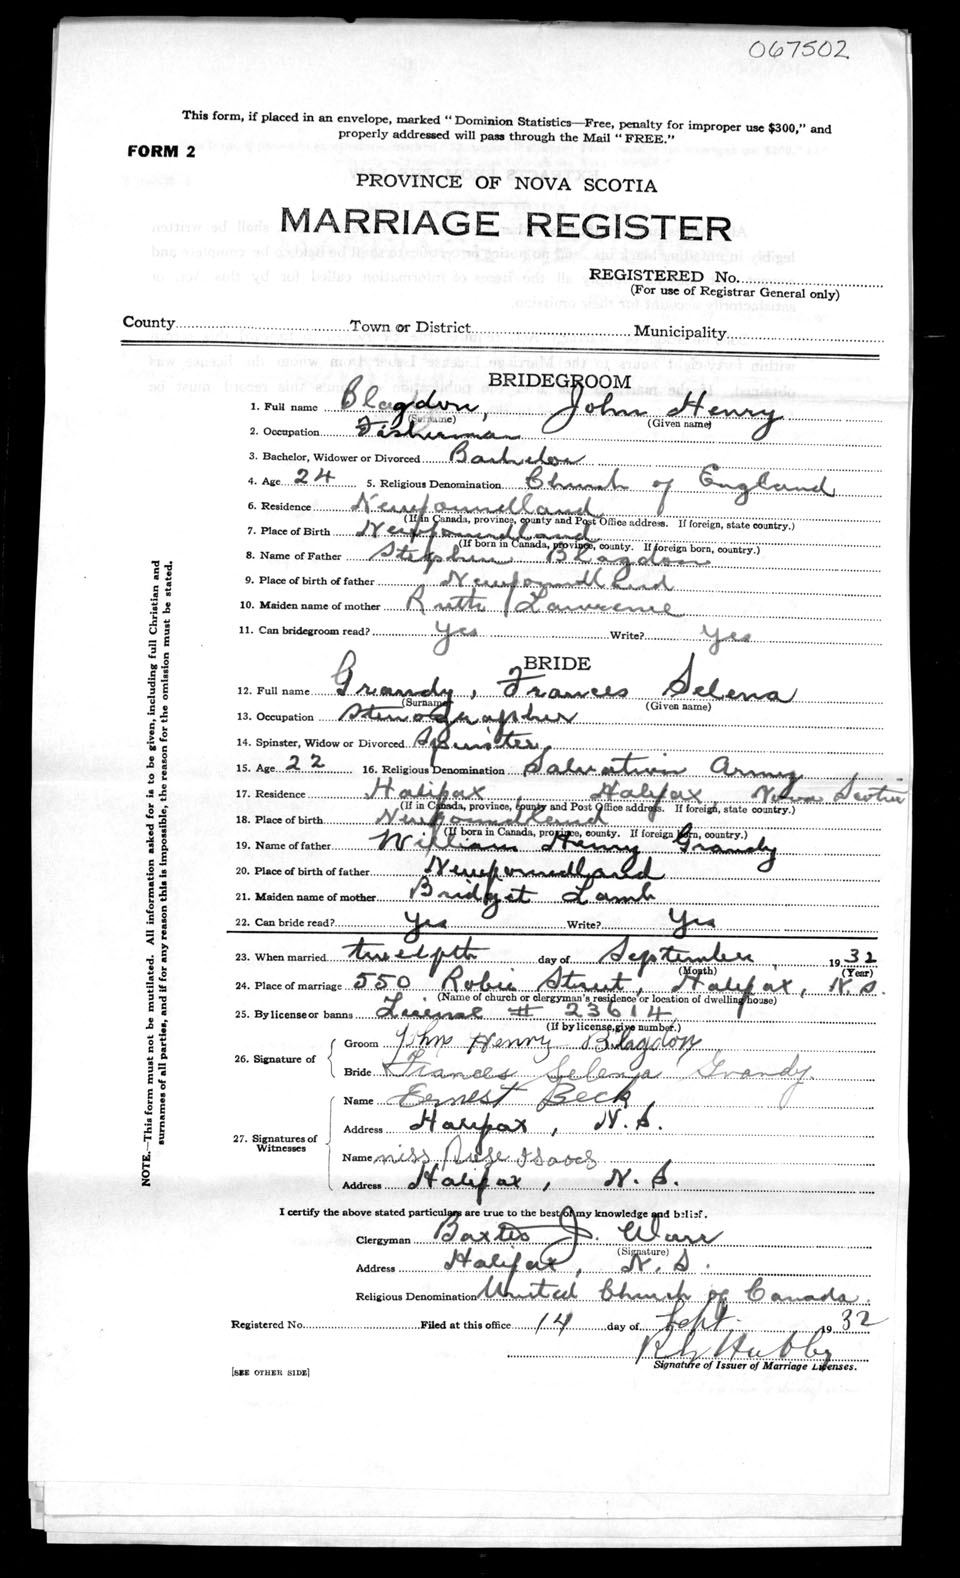 067502
This form, if placed in an envelope, marked "Dominion Statistics—Free, penalty for improper use $300," and
properly addressed will pass through the Mail "FREE."
FORM 2
PROVINCE OF NOVA SCOTIA
MARRIAGE REGISTER
REGISTERED No.
(For use of Registrar General only)
County Town or District Municipality
BRIDEGROOM
1. Full name Blagdon, John Henry
(Surname) (Given name)
2. Occupation Fisherman
3. Bachelor, Widower or Divorced Bachelor
4. Age 24 5. Religious Denomination Church of England
6. Residence Newfoundland
(If in Canada, province, county and Post Office address. If foreign, state country.)
7. Place of Birth Newfoundland
(If born in Canada, province, county. If foreign born, country.)
8. Name of Father Stephen Blagdon
9. Place of birth of father Newfoundland
10. Maiden name of mother Ruth Lawrence
11. Can bridegroom read? Yes Write? Yes
BRIDE
12. Full name Grandy, Frances Selena
(Surname) (Given name)
13. Occupation Stenographer
14. Spinster, Widow or Divorced Spinster
15. Age 22 16. Religious Denomination Salvation Army
17. Residence Halifax Halifax Nova Scotia
(If in Canada, province, county and Post Office address. If foreign, state country.)
18. Place of birth Newfoundland
(If born in Canada, province, county. If foreign born, country.)
19. Name of father William Henry Grandy
20. Place of birth of father Newfoundland
21. Maiden name of mother Bridget Lamb
22. Can bride read? Yes Write? Yes
23. When married twelfth day of September, 1932
(Month) (Year)
24. Place of marriage 550 Robie Street, Halifax, N.S.
(Name of church or clergyman's residence or location of dwelling house)
25. By license or banns License # 23614
(If by license, give number.)
26. Signature of Groom John Henry Blagdon
Bride Frances Selena Grandy
27. Signatures of Witnesses
Name Ernest Beck
Address Halifax, N.S.
Name miss Rose Isaacs
Address Halifax, N.S.
I certify the above stated particulars are true to the best of my knowledge and belief.
Clergyman Baxter J.
(Signature)
Address Halifax, N.S.
Religious Denomination United Church of Canada.
Registered No. Filed at this office 14 day of Sept. 1932
Hubby
Signature of Issuer of Marriage Licenses.
[SEE OTHER SIDE]
NOTE.—This form must not be mutilated. All information asked for is to be given, including full Christian and
surnames of all parties, and if for any reason this is impossible, the reason for the omission must be stated.